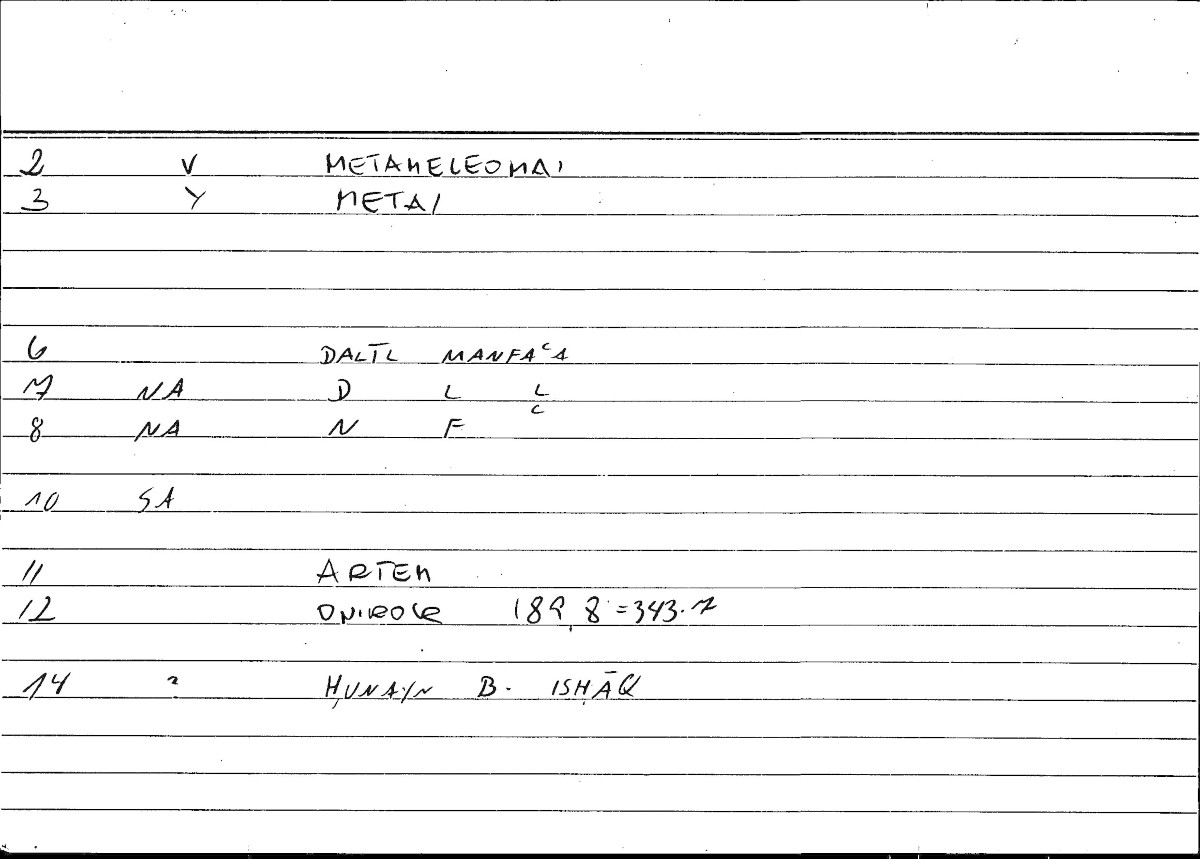 2 V METAMELEOMAI
3 Y META/
6 DALĪL MANFAᶜA
7 NA D L L
8 NA N F ᶜ
10 SA
11 ARTEM
12 ONIROCR 189,8 = 343.7
14 ² ḤUNAYN B. ISḤĀQ